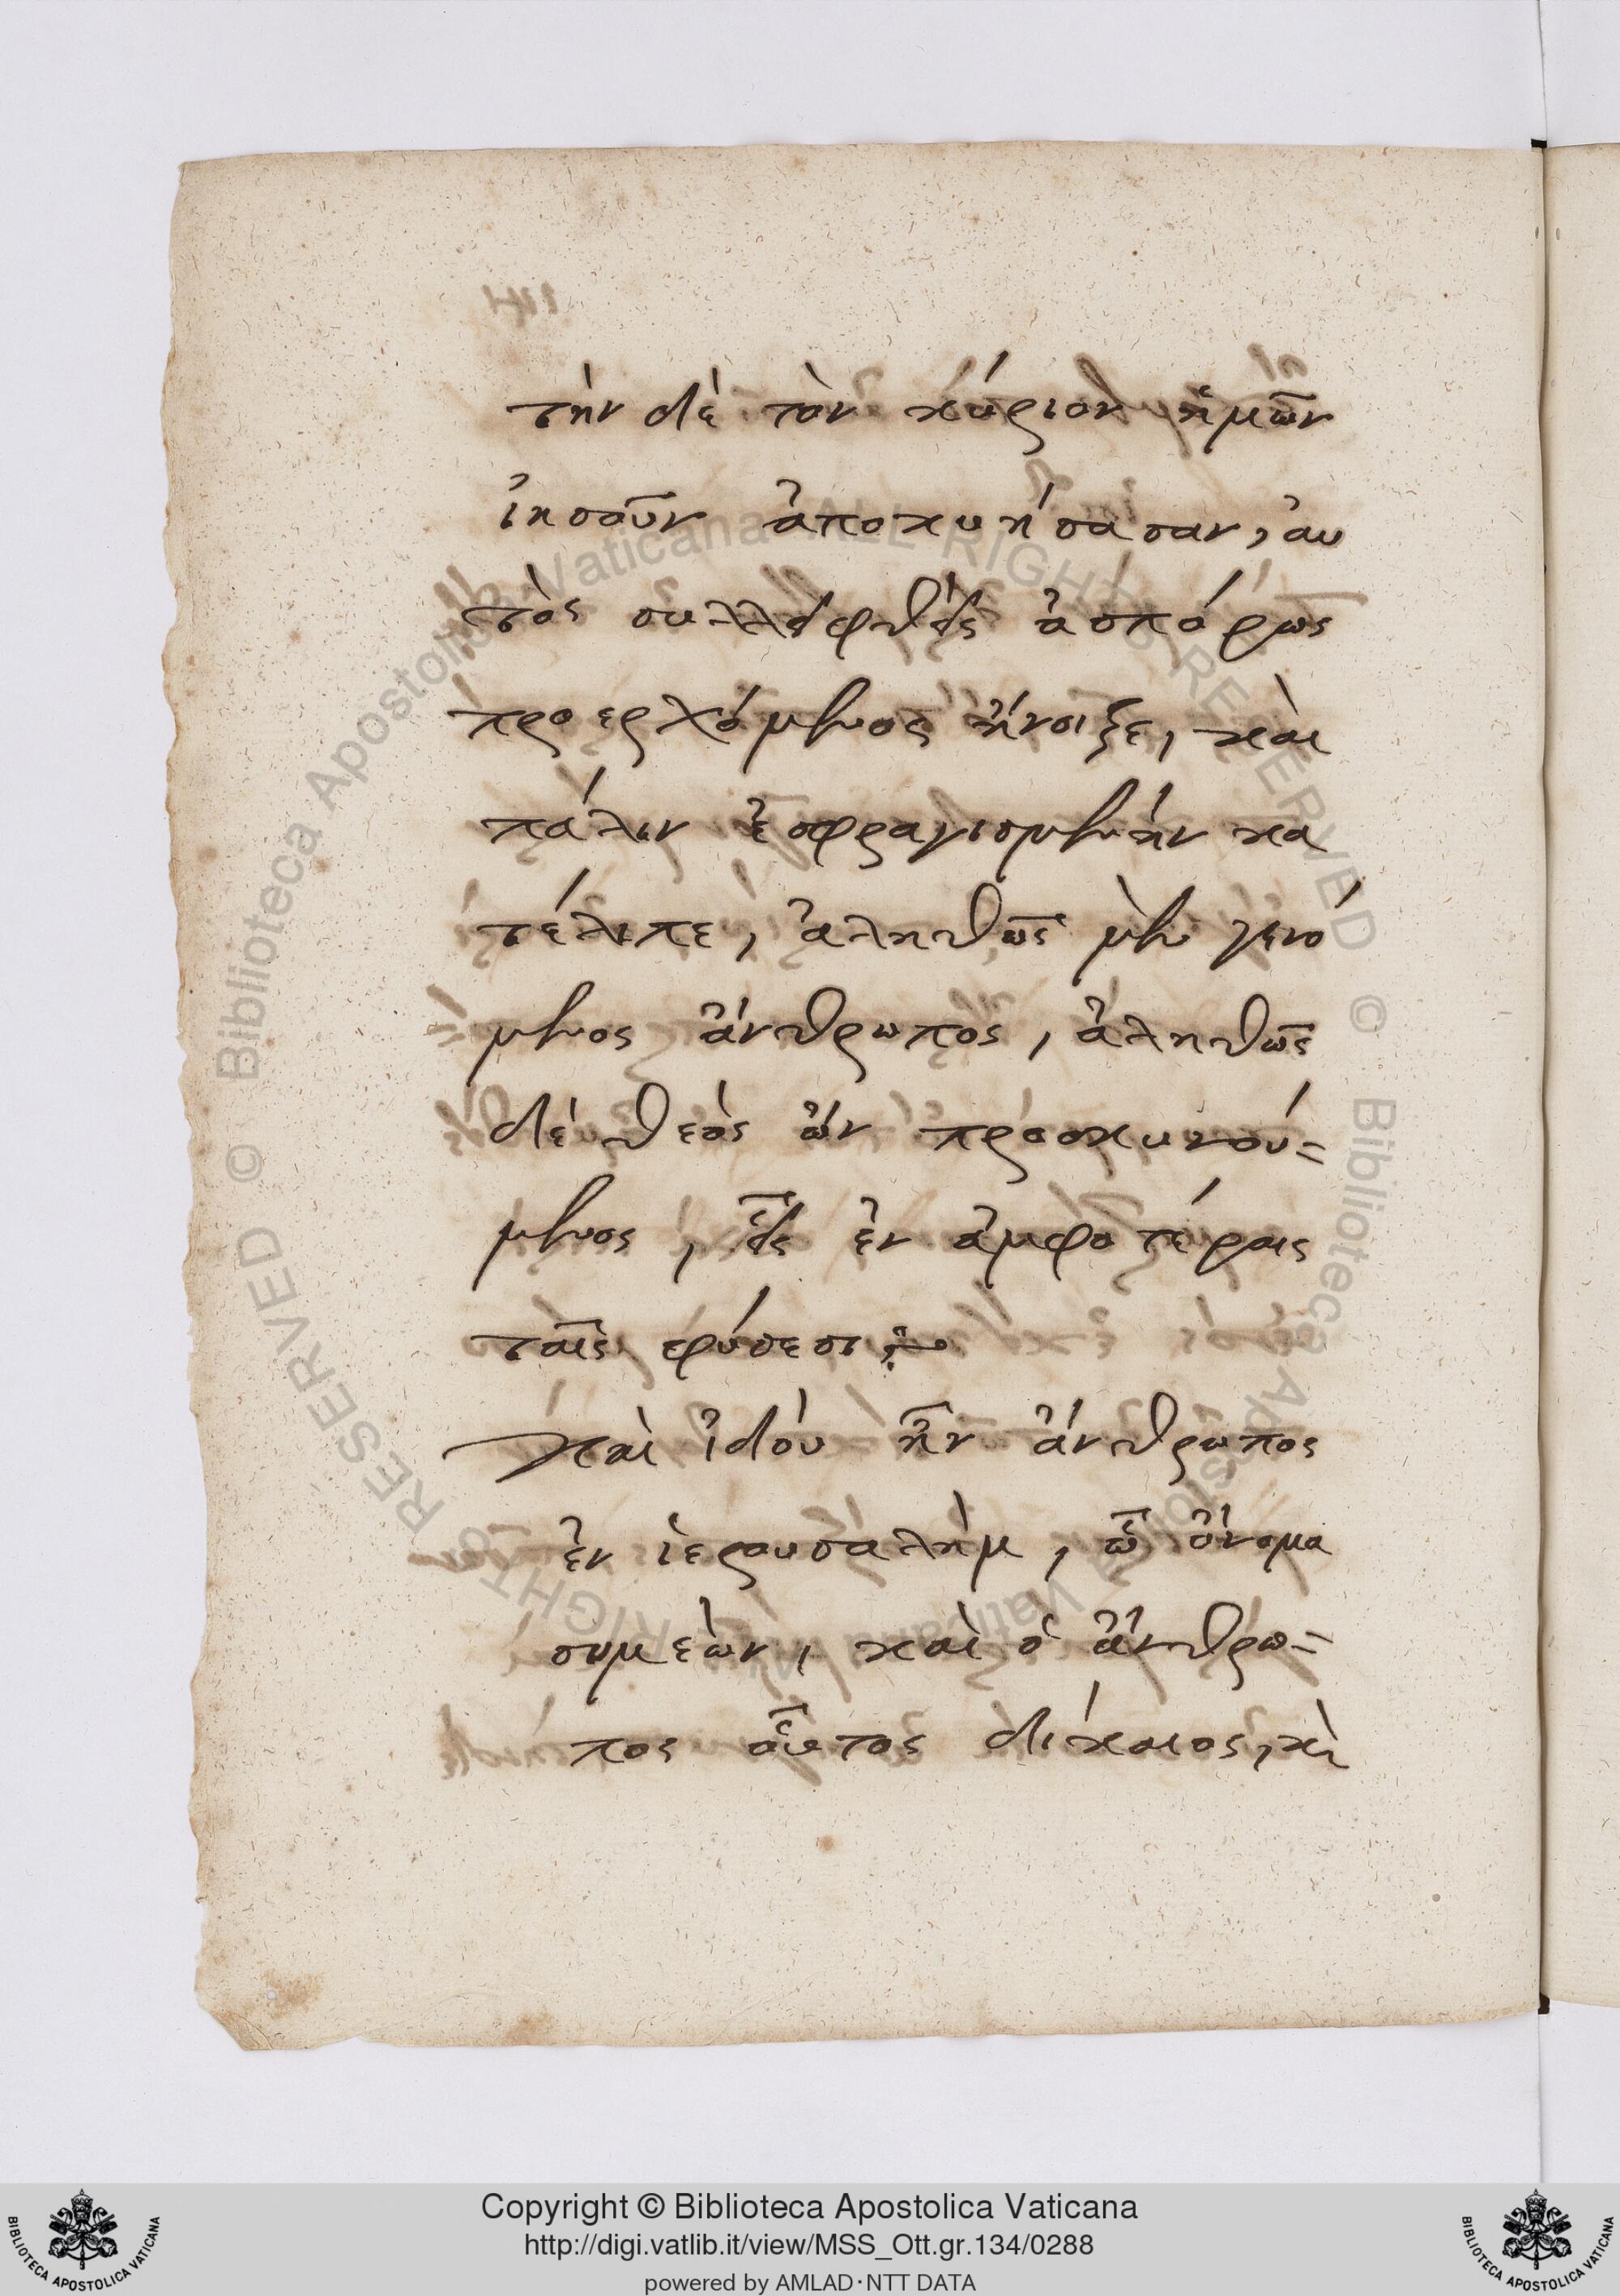 τὴν δὲ τὸν κύριον ἡμῶν
ἰησοῦν ἀποκυήσασαν, αυ
τὸς συλληφθεὶς ἀσπόρως
προερχόμενος ἤνοιξε, καὶ
πάλιν ἐσφραγισμένην κα
τέλιπε, ἀληθῶς μὲν γενό
μενος ἄνθρωπος, ἀληθῶς
δὲ θεὸς ὢν προσκυνού=
μενος, εἷς ἐν ἀμφοτέραις
ταῖς φύσεσι
καὶ ἰδοὺ ἦν ἄνθρωπος
ἐν ἱερουσαλὴμ, ὧ ὄνομα
συμεὼν, καὶ ὁ ἄνθρω=
πος οὗτος δίκαιος, κὶ
Copyright © Biblioteca Apostolica Vaticana
http://digi.vatlib.it/view/MSS_Ott.gr.134/0288
powered by AMLAD·NTT DATA
BIBLIOTECA APOSTOLICA VATICANA
BIBLIOTECA APOSTOLICA VATICANA
© Biblioteca Apostolica Vaticana ALL RIGHTS RESERVED © Biblioteca Apostolica Vaticana ALL RIGHTS RESERVED